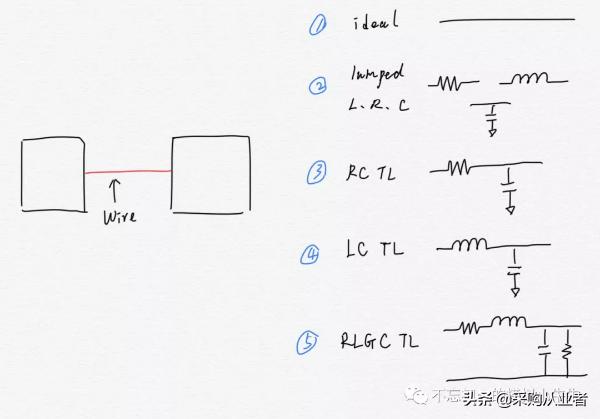 ① ideal
② lumped
L.R.C
wire
③ RC TL
④ LC TL
⑤ RLGC TL
头条 @采购从业者